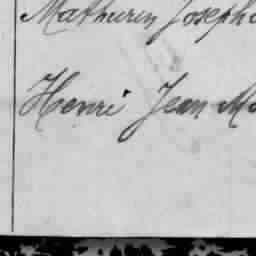 Mathurin Joseph
Henri Jean M